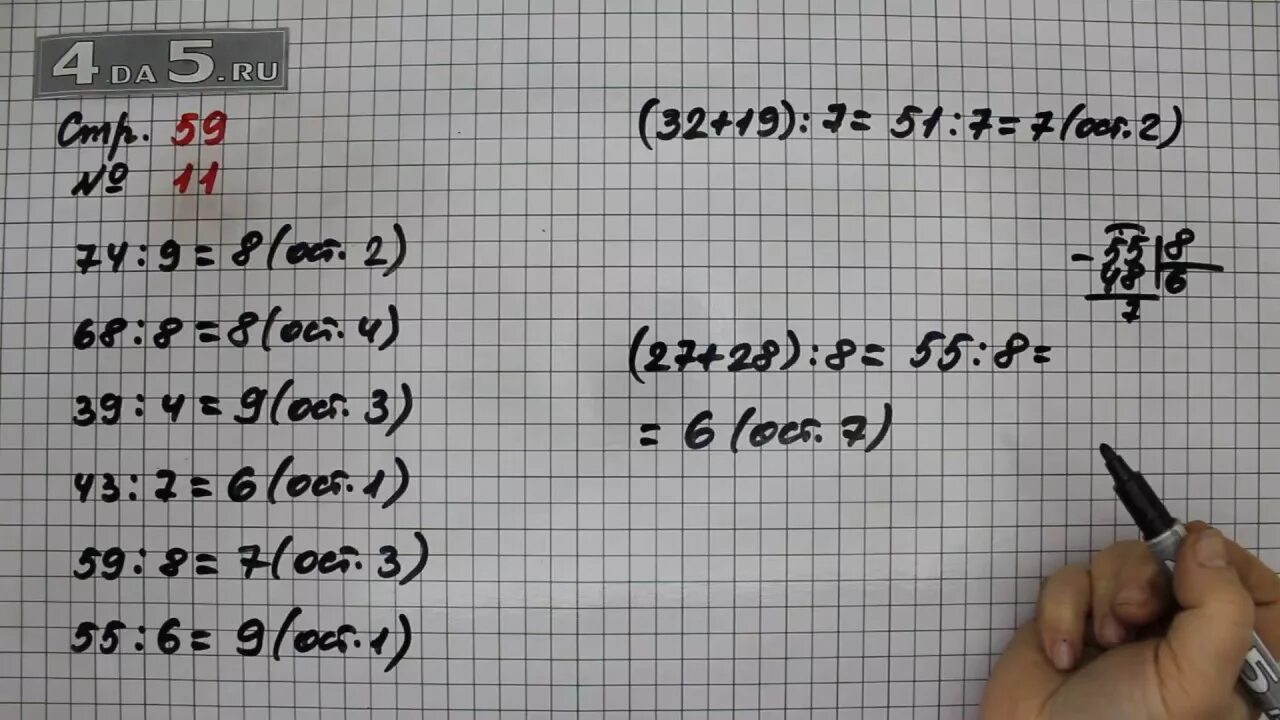 4DA5.RU
Стр. 59
№ 11
74:9=8(ост.2)
68:8=8(ост.4)
39:4=9(ост.3)
43:7=6(ост.1)
59:8=7(ост.3)
55:6=9(ост.1)
(32+19):7=51:7=7(ост.2)
-55|8
48|6
7
(27+28):8=55:8=
=6(ост.7)
5